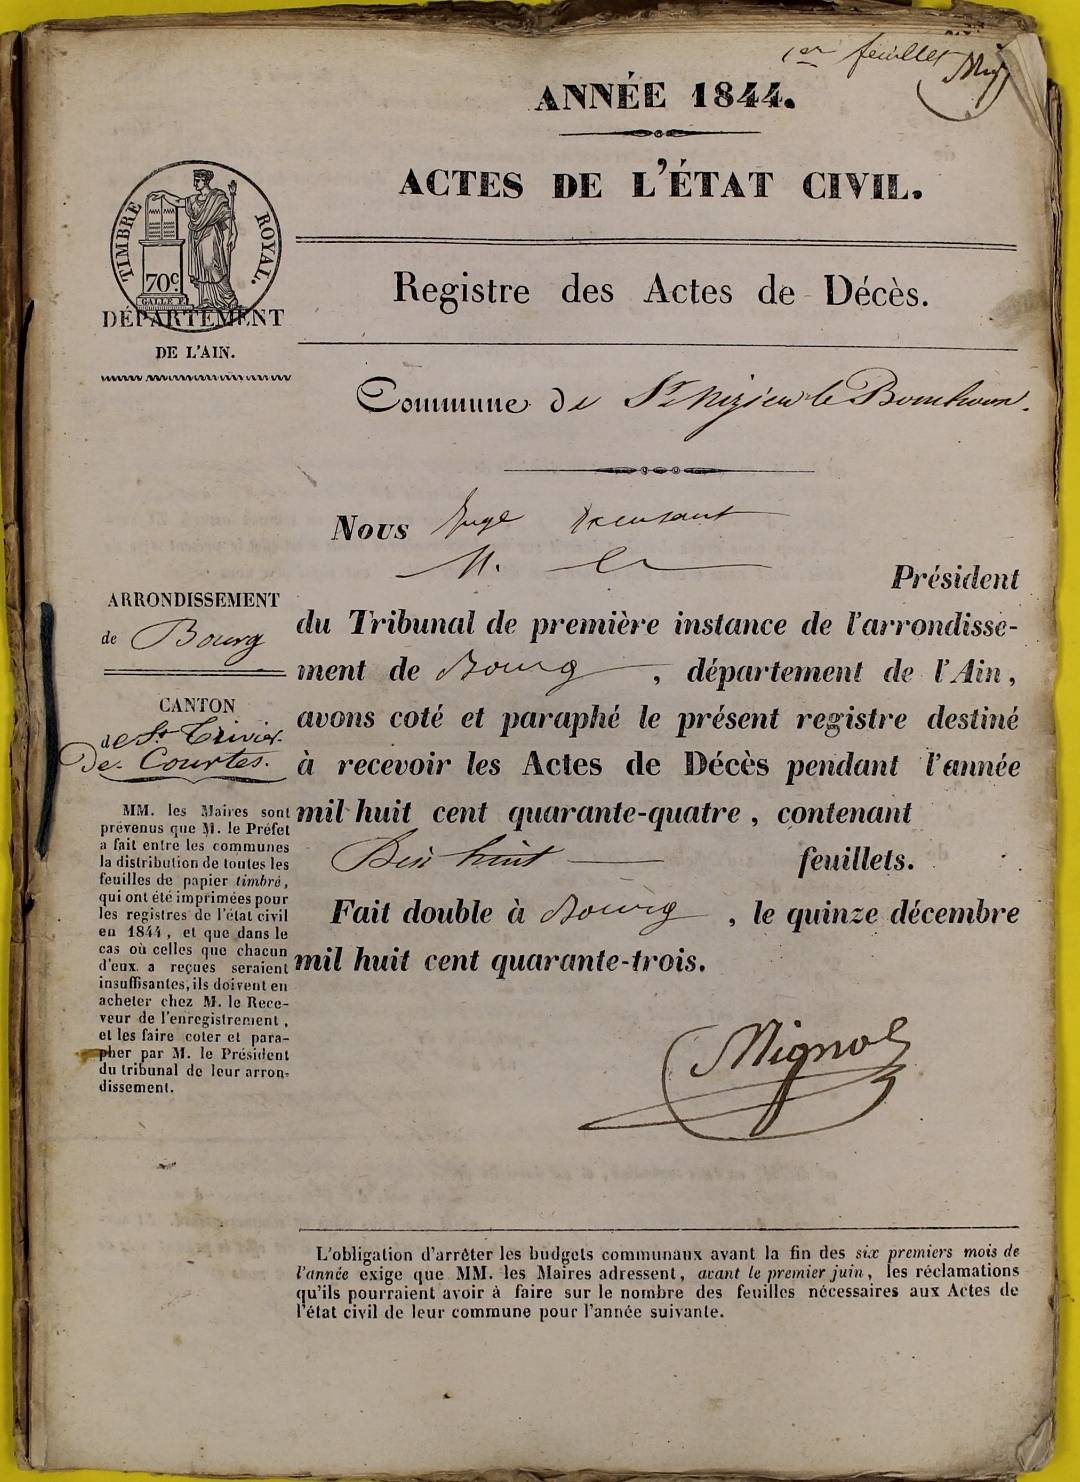 1er feuillet
ANNÉE 1844.
ACTES DE L'ÉTAT CIVIL.
TIMBRE ROYAL.
70c
DÉPARTEMENT
DE L'AIN.
Registre des Actes de Décès.
Commune de St Nizier le Bouchoux.
Nous Juge
Président
du Tribunal de première instance de l'arrondisse-
ment de Bourg, département de l'Ain,
avons coté et paraphé le présent registre destiné
à recevoir les Actes de Décès pendant l'année
mil huit cent quarante-quatre, contenant
huit feuillets.
Fait double à Bourg, le quinze décembre
mil huit cent quarante-trois.
ARRONDISSEMENT
de Bourg
CANTON
de St Trivier
De Courtes.
MM. les Maires sont
prévenus que M. le Préfet
a fait entre les communes
la distribution de toutes les
feuilles de papier timbré,
qui ont été imprimées pour
les registres de l'état civil
en 1844, et que dans le
cas où celles que chacun
d'eux a reçues seraient
insuffisantes, ils doivent en
acheter chez M. le Rece-
veur de l'enregistrement,
et les faire coter et para-
pher par M. le Président
du tribunal de leur arron-
dissement.
L'obligation d'arrêter les budgets communaux avant la fin des six premiers mois de
l'année exige que MM. les Maires adressent, avant le premier juin, les réclamations
qu'ils pourraient avoir à faire sur le nombre des feuilles nécessaires aux Actes de
l'état civil de leur commune pour l'année suivante.